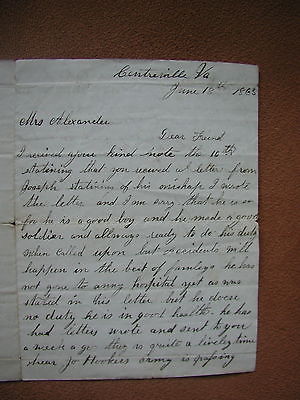 Centreville Va
June 18th 1863
Mrs Alexander
Dear Friend
I received your kind note the 16th
stationg that you received a letter from
Joseph stationg of his onishap I wrote
the letter and I am sory that he is so
for he is a good boy and he made a good
soldier and allways ready to do his duty
when called upon but accidents will
happen in the best of familys he has
not gone to anny hospital yet as was
stated in this letter but he doese
no duty he is in good health he has
had letters wrote and sent to you
a week a go they is quite a lively time
hear Jo Hookers army is passing